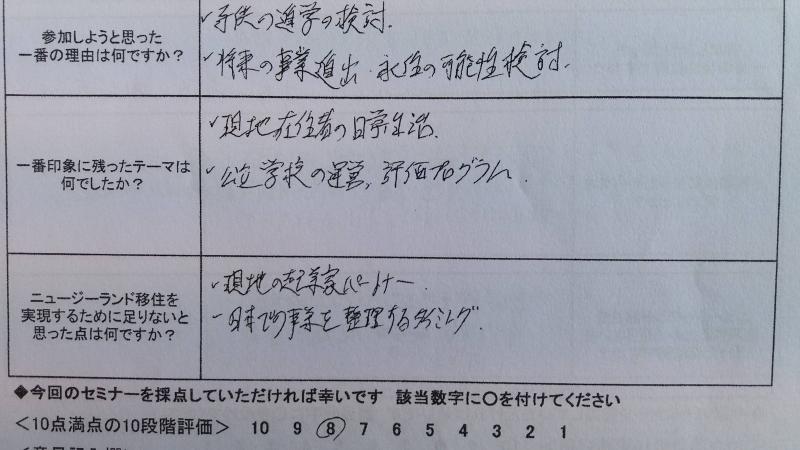 参加しようと思った
一番の理由は何ですか？
✓子供の進学の検討.
✓将来の事業進出・永住の可能性検討.
一番印象に残ったテーマは
何でしたか？
✓現地在住者の日常生活.
✓公立学校の運営,評価プログラム.
ニュージーランド移住を
実現するために足りないと
思った点は何ですか？
・現地の起業家パートナー.
-日本での事業を整理するタイミング.
◆今回のセミナーを採点していただければ幸いです 該当数字に〇を付けてください
＜10点満点の10段階評価＞ 10 9 8 7 6 5 4 3 2 1